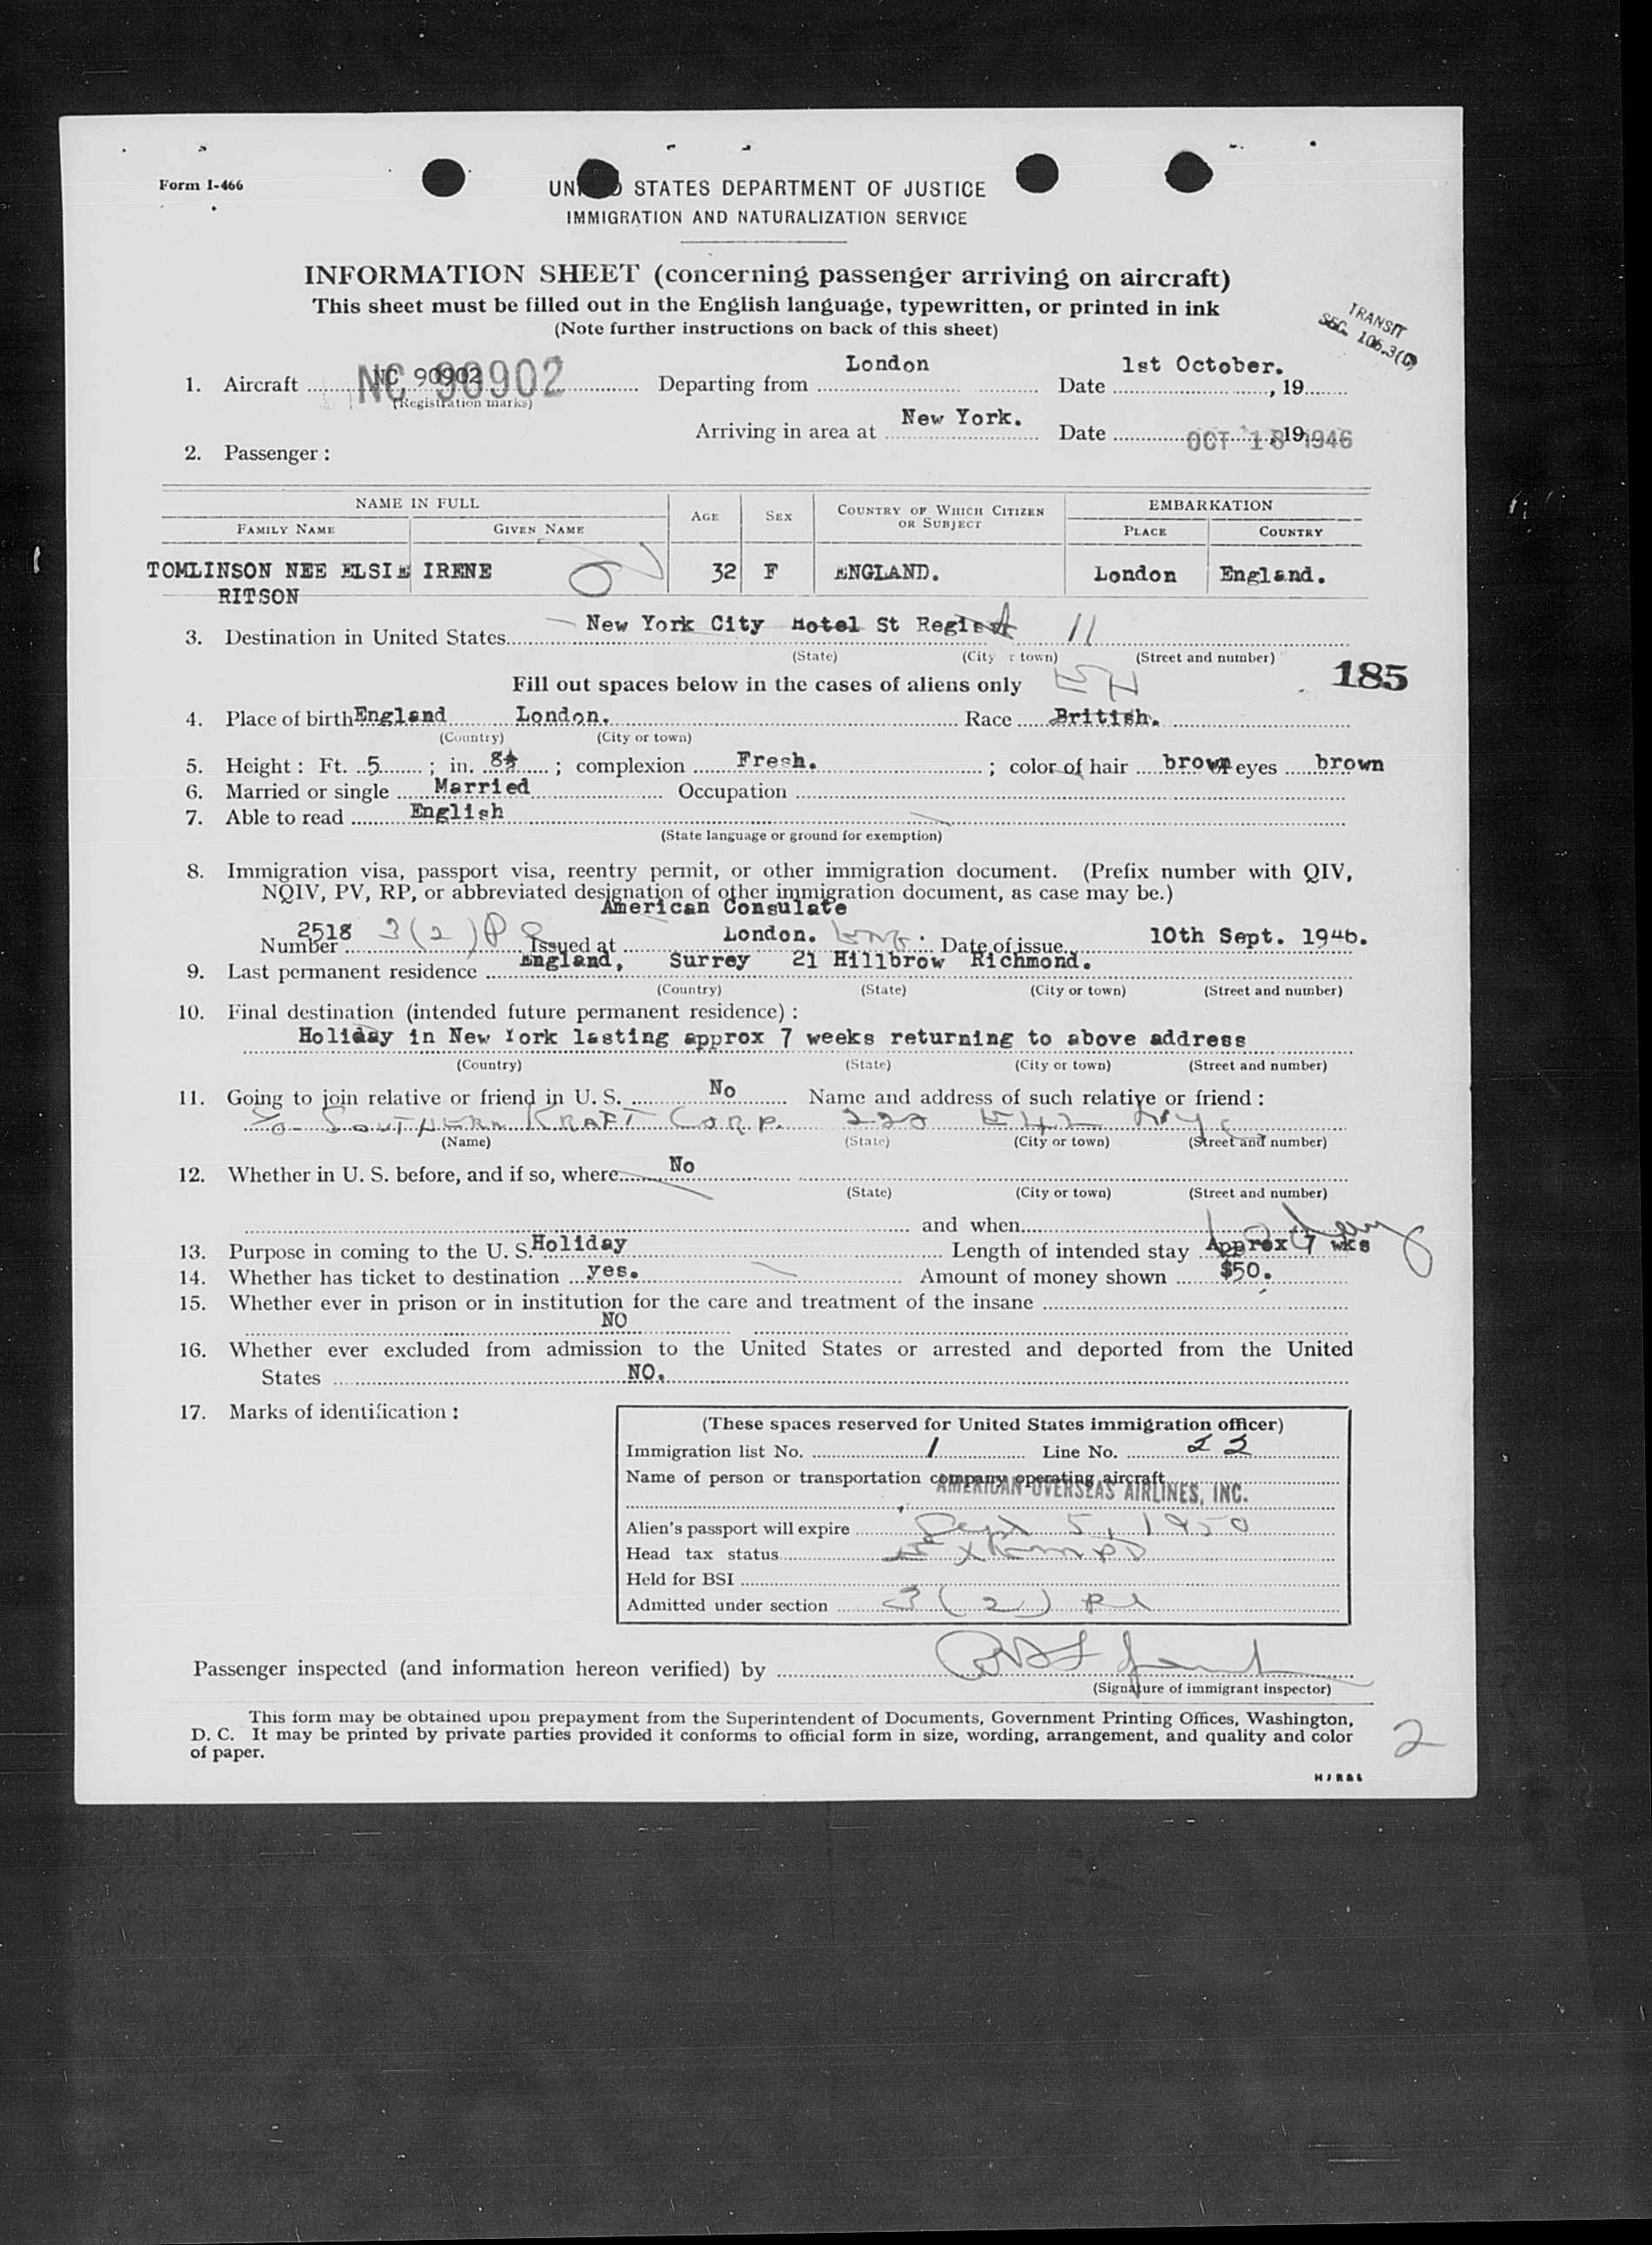 Form I-466
UNITED STATES DEPARTMENT OF JUSTICE
IMMIGRATION AND NATURALIZATION SERVICE
INFORMATION SHEET (concerning passenger arriving on aircraft)
This sheet must be filled out in the English language, typewritten, or printed in ink
(Note further instructions on back of this sheet)
TRANSIT
SEC. 106.3(D)
1. Aircraft NC 90902 NC 90902 Departing from London Date 1st October. , 19
(Registration marks)
Arriving in area at New York. Date OCT 18 1946 , 19
2. Passenger :
NAME IN FULL AGE SEX COUNTRY OF WHICH CITIZEN OR SUBJECT EMBARKATION
FAMILY NAME GIVEN NAME PLACE COUNTRY
TOMLINSON NEE ELSIE IRENE 32 F ENGLAND. London England.
RITSON
3. Destination in United States New York City Hotel St Regis 11
(State) (City or town) (Street and number)
185
Fill out spaces below in the cases of aliens only
4. Place of birth England London. Race British.
(Country) (City or town)
5. Height : Ft. 5 ; in. 8½ ; complexion Fresh. ; color of hair brown eyes brown
6. Married or single Married Occupation
7. Able to read English
(State language or ground for exemption)
8. Immigration visa, passport visa, reentry permit, or other immigration document. (Prefix number with QIV,
NQIV, PV, RP, or abbreviated designation of other immigration document, as case may be.)
American Consulate
Number 2518 3(2) Issued at London. Date of issue 10th Sept. 1946.
9. Last permanent residence England, Surrey 21 Hillbrow Richmond.
(Country) (State) (City or town) (Street and number)
10. Final destination (intended future permanent residence) :
Holiday in New York lasting approx 7 weeks returning to above address
(Country) (State) (City or town) (Street and number)
11. Going to join relative or friend in U. S. No Name and address of such relative or friend :
c/o SOUTHERN KRAFT CORP. 220 E 42 NYC
(Name) (State) (City or town) (Street and number)
12. Whether in U. S. before, and if so, where No
(State) (City or town) (Street and number)
and when
13. Purpose in coming to the U. S. Holiday Length of intended stay Approx 7 wks
14. Whether has ticket to destination yes. Amount of money shown $50.
15. Whether ever in prison or in institution for the care and treatment of the insane
NO
16. Whether ever excluded from admission to the United States or arrested and deported from the United
States NO.
17. Marks of identification :
(These spaces reserved for United States immigration officer)
Immigration list No. 1 Line No. 22
Name of person or transportation company operating aircraft
AMERICAN OVERSEAS AIRLINES, INC.
Alien's passport will expire Sept 5, 1950
Head tax status Exempt
Held for BSI
Admitted under section 3(2)
Passenger inspected (and information hereon verified) by
(Signature of immigrant inspector)
This form may be obtained upon prepayment from the Superintendent of Documents, Government Printing Offices, Washington,
D. C. It may be printed by private parties provided it conforms to official form in size, wording, arrangement, and quality and color
of paper.
2
HJR&L